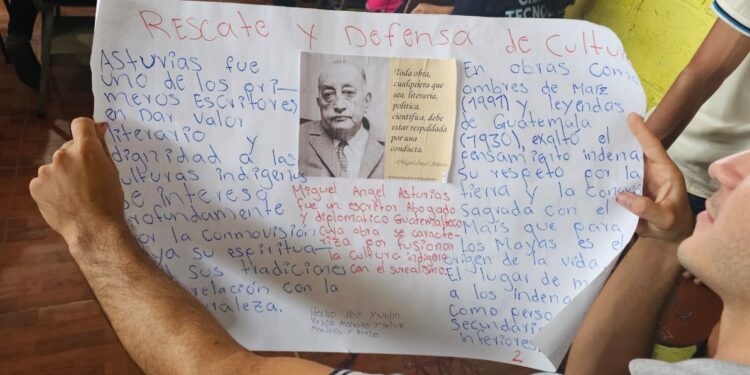 Rescate y Defensa de Cultu
Asturias fue
uno de los pri-
meros Escritores
en Dar valor
literario y
dignidad a las
culturas indigenas
se interesó
profundamente
por la connovision
maya su espiritua-
sus tradiciones
relación con la
raleza.
Toda obra,
cualquiera que
sea, literaria,
política,
científica, debe
estar respaldada
por una
conducta.
Miguel Ángel Asturias
Miguel Angel Asturias
fue un escritor Abogado
y diplomatico Guatemalteco
cuya obra se caracte-
riza por fusionar
la cultura indigena
con el surealismo
Hecho por
En obras como
ombres de Maíz
(1991) y leyendas
de Guatemala
(1930), exaltó el
pensamiento indena
su respeto por la
tierra y la
sagrada con el
Maíz que para
los Mayas es el
origen de la vida.
El lugar de m
a los indena
como perso
secundario
inferiores
2
TECNO